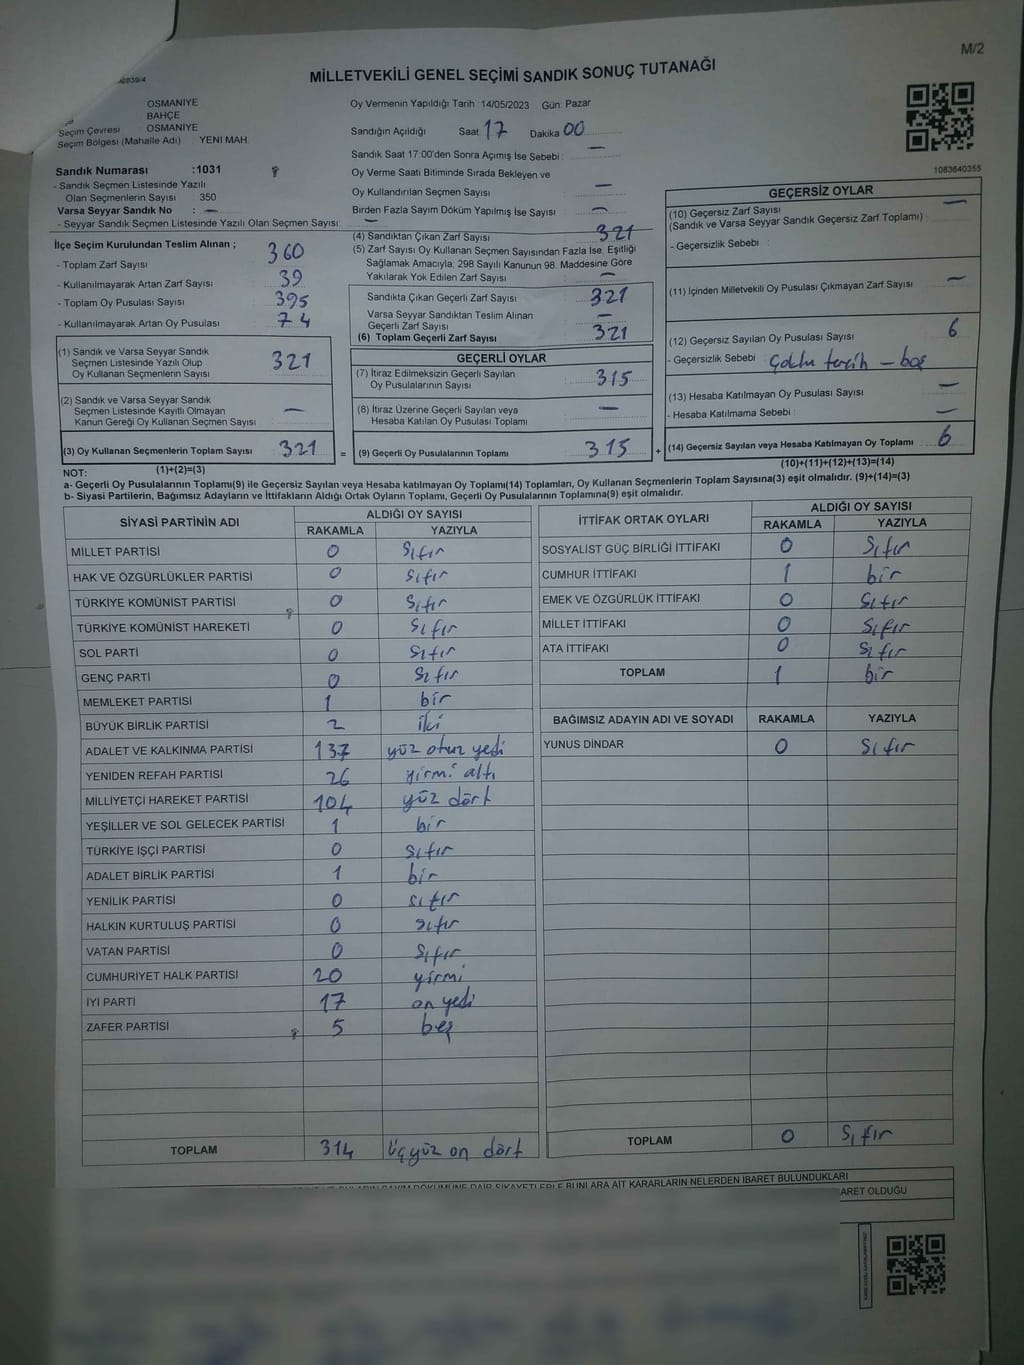 M/2
MİLLETVEKİLİ GENEL SEÇİMİ SANDIK SONUÇ TUTANAĞI
OSMANİYE
BAHÇE
Seçim Çevresi OSMANİYE
Seçim Bölgesi (Mahalle Adı) YENİ MAH.
Sandık Numarası :1031
- Sandık Seçmen Listesinde Yazılı
Olan Seçmenlerin Sayısı 350
Varsa Seyyar Sandık No : —
- Seyyar Sandık Seçmen Listesinde Yazılı Olan Seçmen Sayısı: —
Oy Vermenin Yapıldığı Tarih :14/05/2023 Gün: Pazar
Sandığın Açıldığı Saat 17 Dakika 00
Sandık Saat 17:00'den Sonra Açımış İse Sebebi : —
Oy Verme Saati Bitiminde Sırada Bekleyen ve
Oy Kullandırılan Seçmen Sayısı —
Birden Fazla Sayım Döküm Yapılmış İse Sayısı —
1083640355
İlçe Seçim Kurulundan Teslim Alınan ;
- Toplam Zarf Sayısı 360
- Kullanılmayarak Artan Zarf Sayısı 39
- Toplam Oy Pusulası Sayısı 395
- Kullanılmayarak Artan Oy Pusulası 74
(1) Sandık ve Varsa Seyyar Sandık
Seçmen Listesinde Yazılı Olup
Oy Kullanan Seçmenlerin Sayısı 321
(2) Sandık ve Varsa Seyyar Sandık
Seçmen Listesinde Kayıtlı Olmayan
Kanun Gereği Oy Kullanan Seçmen Sayısı —
(3) Oy Kullanan Seçmenlerin Toplam Sayısı 321 =
(1)+(2)=(3)
(4) Sandıktan Çıkan Zarf Sayısı 321
(5) Zarf Sayısı Oy Kullanan Seçmen Sayısından Fazla İse, Eşitliği
Sağlamak Amacıyla, 298 Sayılı Kanunun 98. Maddesine Göre
Yakılarak Yok Edilen Zarf Sayısı —
Sandıkta Çıkan Geçerli Zarf Sayısı : 321
Varsa Seyyar Sandıktan Teslim Alınan
Geçerli Zarf Sayısı —
(6) Toplam Geçerli Zarf Sayısı 321
GEÇERLİ OYLAR
(7) İtiraz Edilmeksizin Geçerli Sayılan
Oy Pusulalarının Sayısı : 315
(8) İtiraz Üzerine Geçerli Sayılan veya
Hesaba Katılan Oy Pusulası Toplamı : —
(9) Geçerli Oy Pusulalarının Toplamı : 315 +
GEÇERSİZ OYLAR
(10) Geçersiz Zarf Sayısı —
(Sandık ve Varsa Seyyar Sandık Geçersiz Zarf Toplamı) :
- Geçersizlik Sebebi :
(11) İçinden Milletvekili Oy Pusulası Çıkmayan Zarf Sayısı : —
(12) Geçersiz Sayılan Oy Pusulası Sayısı 6
- Geçersizlik Sebebi : Çoklu tercih - boş
(13) Hesaba Katılmayan Oy Pusulası Sayısı —
- Hesaba Katılmama Sebebi : —
(14) Geçersiz Sayılan veya Hesaba Katılmayan Oy Toplamı 6
(10)+(11)+(12)+(13)=(14)
NOT:
a- Geçerli Oy Pusulalarının Toplamı(9) ile Geçersiz Sayılan veya Hesaba katılmayan Oy Toplamı(14) Toplamları, Oy Kullanan Seçmenlerin Toplam Sayısına(3) eşit olmalıdır. (9)+(14)=(3)
b- Siyasi Partilerin, Bağımsız Adayların ve İttifakların Aldığı Ortak Oyların Toplamı, Geçerli Oy Pusulalarının Toplamına(9) eşit olmalıdır.
SİYASİ PARTİNİN ADI ALDIĞI OY SAYISI
RAKAMLA YAZIYLA
MİLLET PARTİSİ 0 Sıfır
HAK VE ÖZGÜRLÜKLER PARTİSİ 0 sıfır
TÜRKİYE KOMÜNİST PARTİSİ 0 Sıfır
TÜRKİYE KOMÜNİST HAREKETİ 0 Sıfır
SOL PARTİ 0 Sıfır
GENÇ PARTİ 0 Sıfır
MEMLEKET PARTİSİ 1 bir
BÜYÜK BİRLİK PARTİSİ 2 iki
ADALET VE KALKINMA PARTİSİ 137 yüz otuz yedi
YENİDEN REFAH PARTİSİ 26 yirmi altı
MİLLİYETÇİ HAREKET PARTİSİ 104 yüz dört
YEŞİLLER VE SOL GELECEK PARTİSİ 1 bir
TÜRKİYE İŞÇİ PARTİSİ 0 sıfır
ADALET BİRLİK PARTİSİ 1 bir
YENİLİK PARTİSİ 0 sıfır
HALKIN KURTULUŞ PARTİSİ 0 sıfır
VATAN PARTİSİ 0 Sıfır
CUMHURİYET HALK PARTİSİ 20 yirmi
İYİ PARTİ 17 on yedi
ZAFER PARTİSİ 5 beş
TOPLAM 314 Üçyüz on dört
İTTİFAK ORTAK OYLARI ALDIĞI OY SAYISI
RAKAMLA YAZIYLA
SOSYALİST GÜÇ BİRLİĞİ İTTİFAKI 0 Sıfır
CUMHUR İTTİFAKI 1 bir
EMEK VE ÖZGÜRLÜK İTTİFAKI 0 Sıfır
MİLLET İTTİFAKI 0 Sıfır
ATA İTTİFAKI 0 Sıfır
TOPLAM 1 bir
BAĞIMSIZ ADAYIN ADI VE SOYADI RAKAMLA YAZIYLA
YUNUS DİNDAR 0 Sıfır
TOPLAM 0 Sıfır
KARARLARIN NELERDEN İBARET BULUNDUKLARI